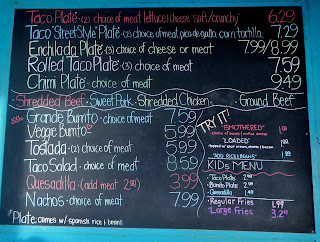 Taco Plate • (2) choice of meat, lettuce & cheese "soft/crunchy" 6.29
Taco "Street Style" Plate • (2) choice of meat, pico de gallo, corn tortilla 7.29
Enchilada Plate • (3) choice of cheese or meat 7.99/8.99
Rolled Taco Plate • (3) choice of meat 7.59
Chimi Plate • choice of meat 9.49
Shredded Beef • Sweet Pork • Shredded Chicken • Ground Beef
Grande Burrito • choice of meat 7.59
Veggie Burrito 5.99
Tostada • (2) choice of meat 5.99
Taco Salad • choice of meat 8.59
Quesadilla • (add meat 2.00) 3.99
Nachos • choice of meat 7.99
Plate comes w/ spanish rice & beans
TRY IT!
"SMOTHERED"
"LOADED"
"ADD RICE & BEANS"
KIDS MENU
• Taco Plate
• Burrito Plate
• Quesadilla
• Regular Fries 1.99
• Large Fries 3.29